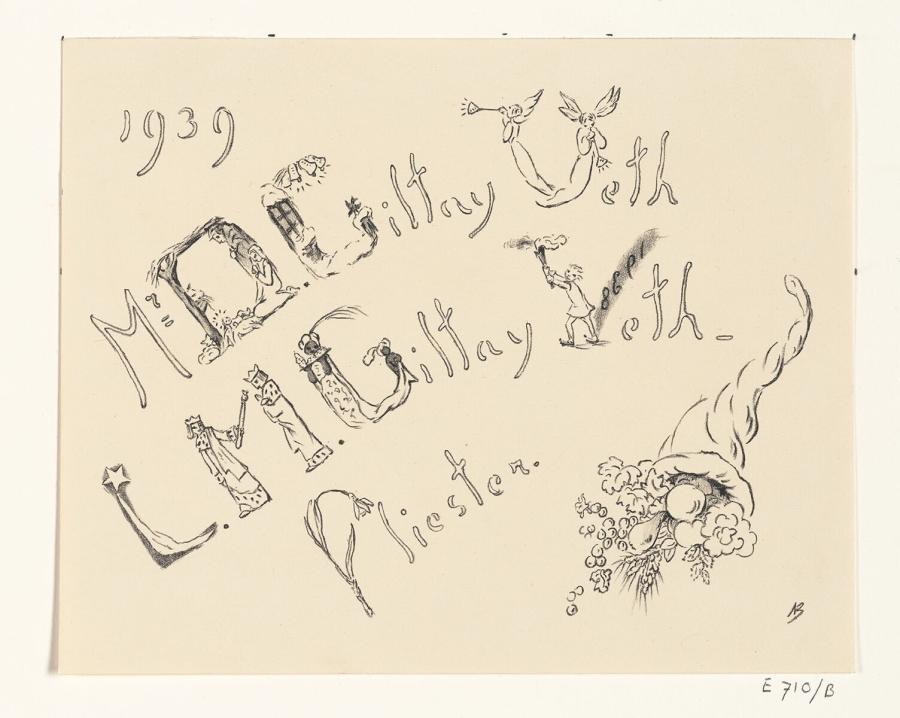 1939
Mr D. Giltay Veth
L. M. Giltay Veth -
Pliester.
E 710/B